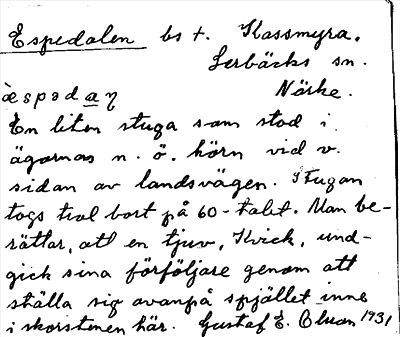 Espedalen bs t. Kassmyra.
Lerbäcks sn.
Närke.
æspədaη
En liten stuga som stod i
ägornas n. ö. hörn vid v.
sidan av landsvägen. Stugan
togs väl bort på 60-talet. Man be-
rättar, att en tjuv, Kvick, und-
gick sina förföljare genom att
ställa sig ovanpå spjället inne
i skorstenen här. Gustaf E. Olsson 1931